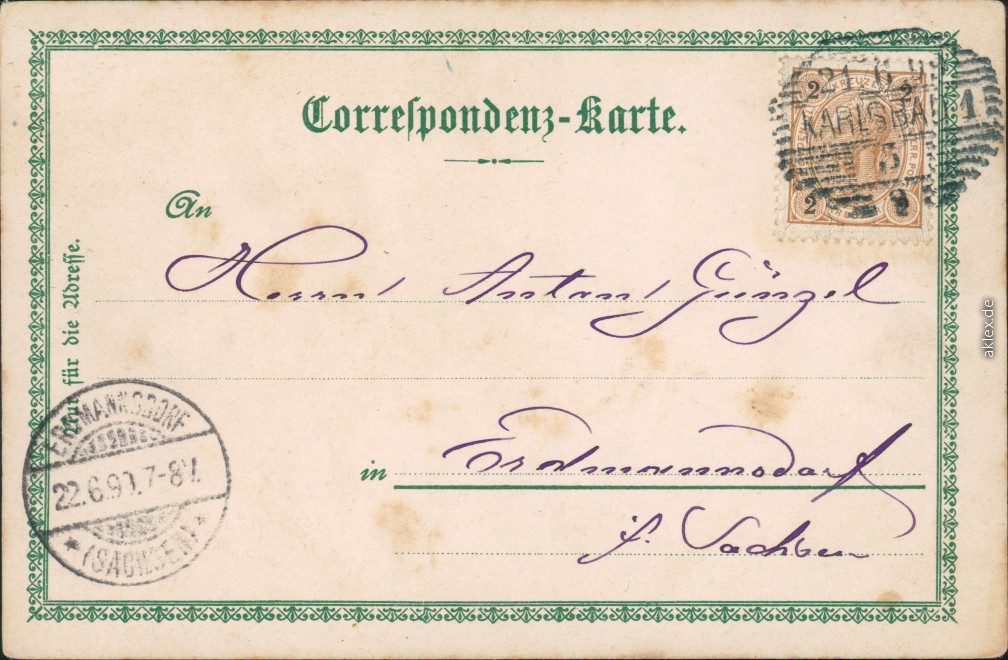 Correspondenz-Karte.
2 KREUZER 2
KARLSBAD 1
2 2
An
Herrn Anton Günzel
Nur für die Adresse.
in Erdmannsdorf
i. Sachsen
ERDMANNSDORF
22.6.99.7-8V.
* (SACHSEN) *
aklex.de